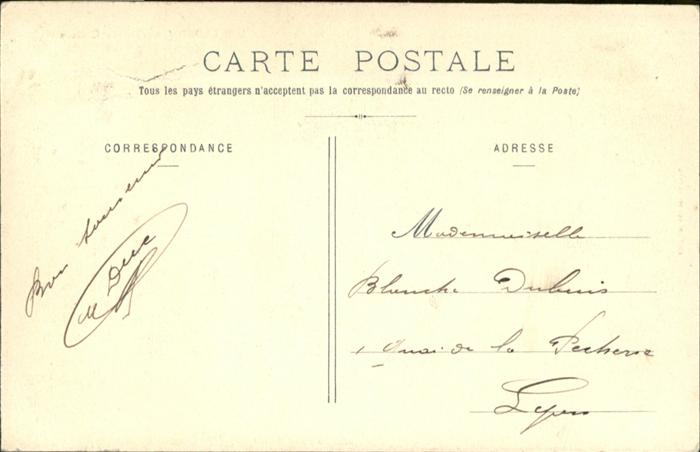 CARTE POSTALE
Tous les pays étrangers n'acceptent pas la correspondance au recto (Se renseigner à la Poste)
CORRESPONDANCE
ADRESSE
Bon souvenir
Mademoiselle
Blanche Dubuis
1 Quai de la Pecherie
Lyon